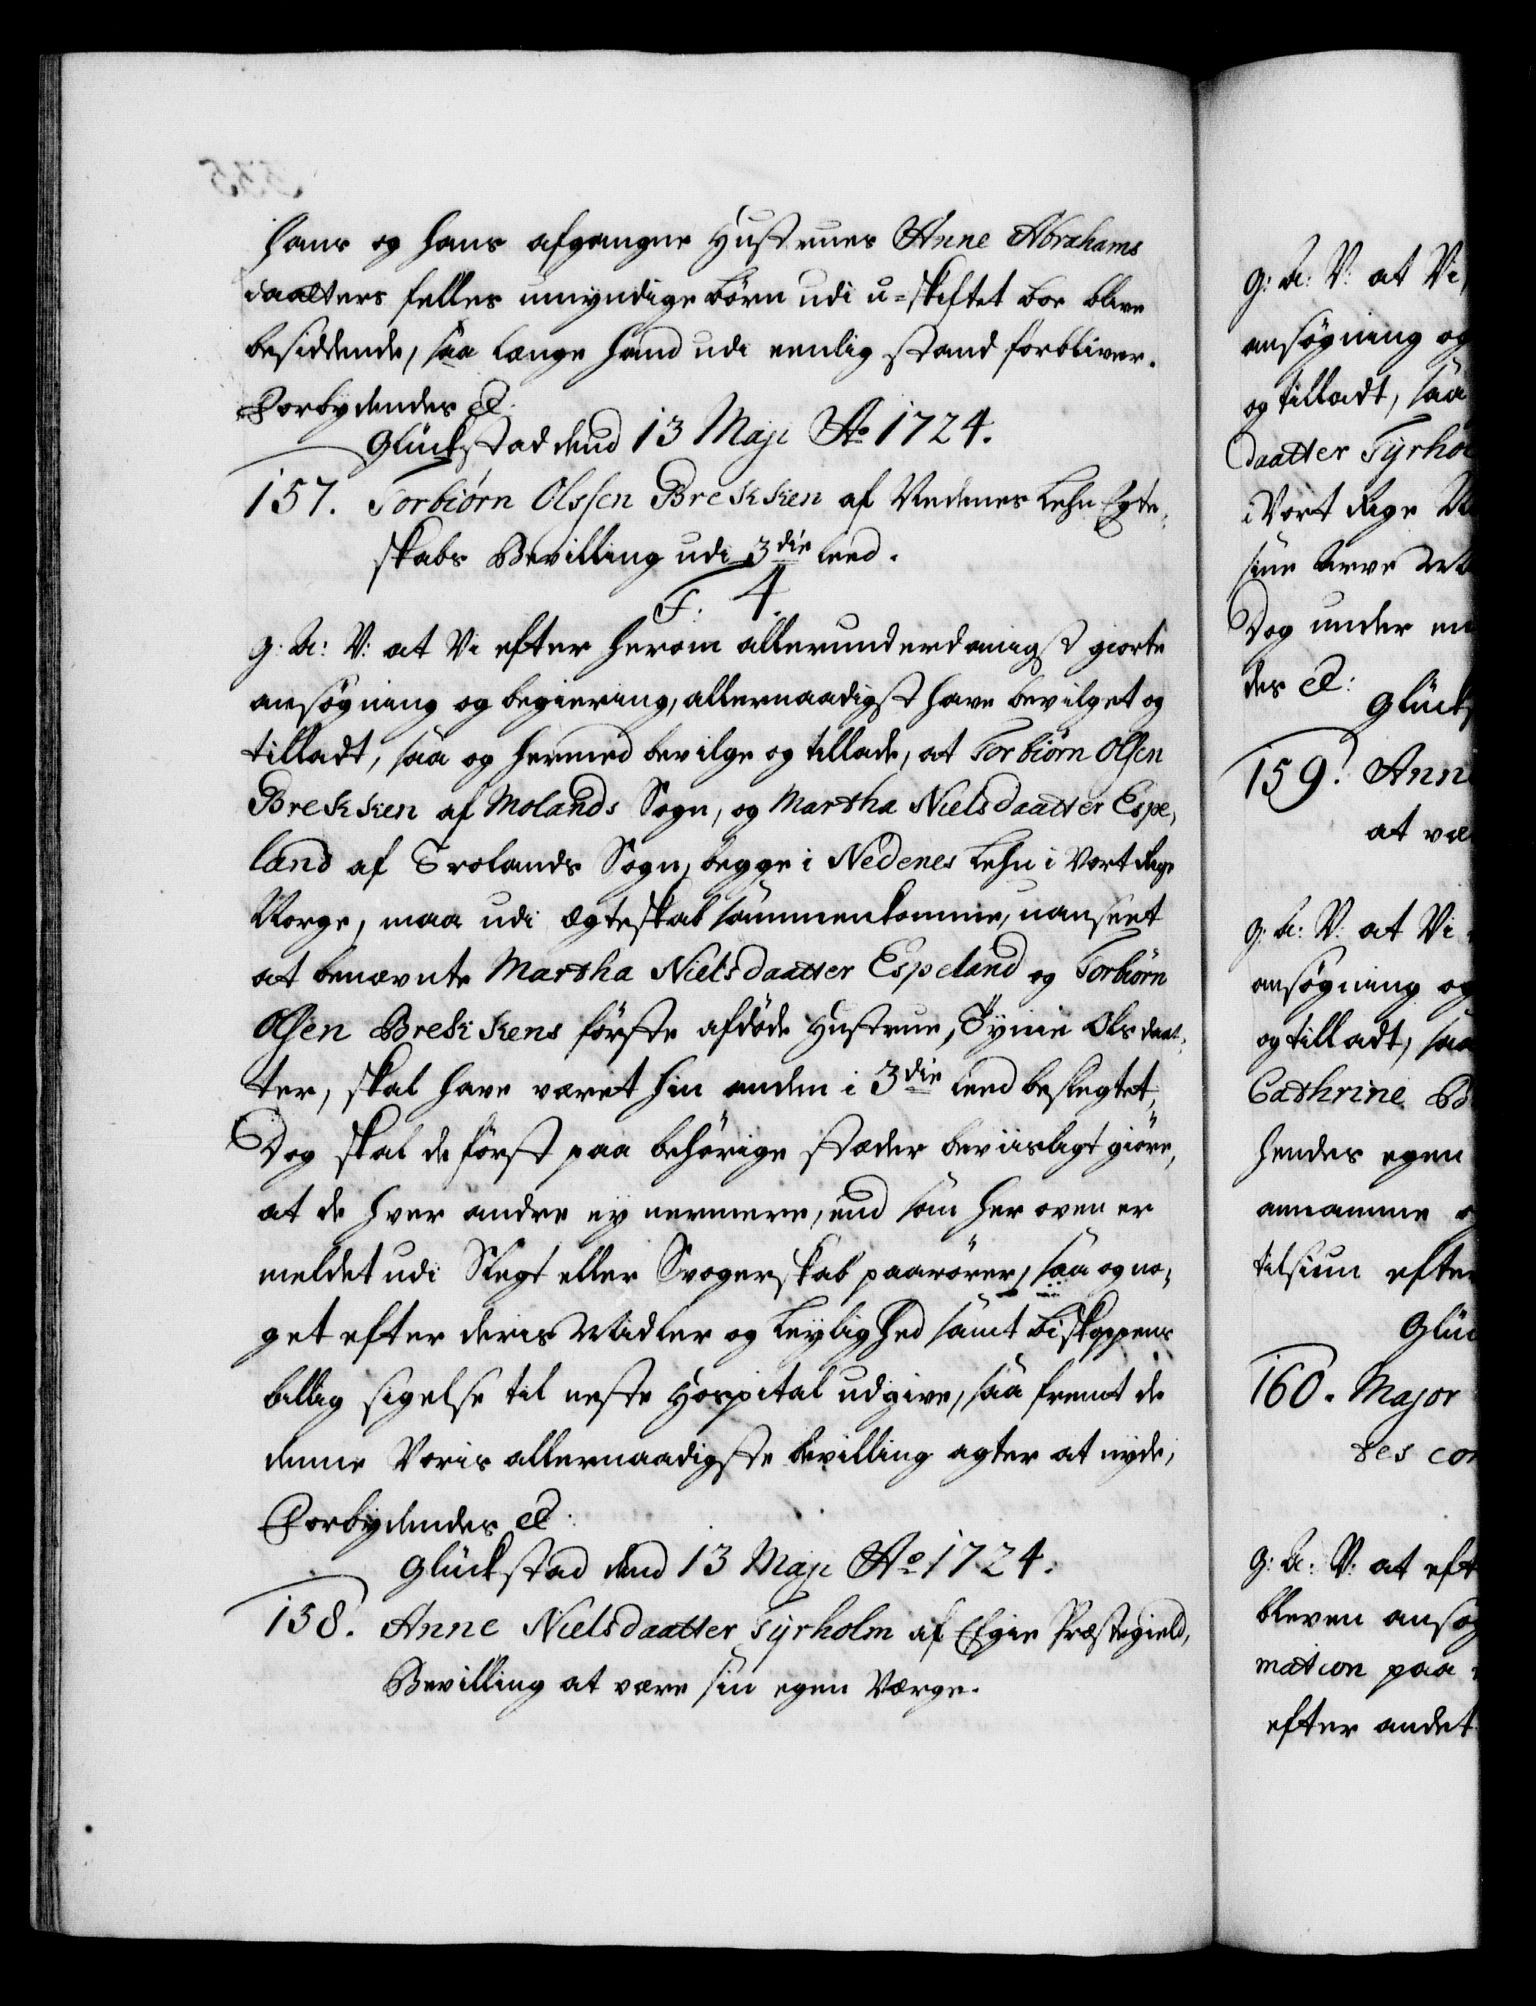 hans og hans afgangne Hustrues Anne Abrahams
daatters felles umyndige børn udi u-skiftet boe blive
besiddende, saa længe hand udi eenlig stand forbliver.
Forbydendes etc.
Glückstad dend 13 Maji Ao 1724.
157. Torbiørn Olssen Brekken af Nedenes Lehn Egte-
skabs Bevilling udi 3die leed.
F. 4.
G: A: V: at Vi efter herom allerunderdanigst giorte
ansøgning og begiering, allernaadigst have bevilget og
tilladt, saa og hermed bevilge og tillade, at Torbiørn Olsen
Brekken af Molands Sogn, og Martha Nielsdaatter Espe-
land af Trolands Sogn, begge i Nedenes Lehn i Vort Rige
Norge, maa udi ægteskab sammenkomme, uanseet
at benævnte Martha Nielsdaatter Espeland og Torbiørn
Olsen Brekkens første afdøde Hustrue, Tynie Olsdaat-
ter, skal have været hin anden i 3die leed beslegtet,
Dog skal de først paa behørige stæder beviisligt giøre,
at de hver andre ey nermere, end som her oven er
meldet udi Slegt eller Svogerskab paarører, saa og no-
get efter deris Midler og Leylighed samt Biskoppens
billig sigelse til neste Hospital udgive, saa fremt de
denne Voris allernaadigste bevilling agter at nyde,
Forbydendes etc.
Glückstad dend 13 Maji Ao 1724.
158. Anne Nielsdaatter Tyrholm af Præstegield,
Bevilling at være sin egen Værge.
G: A: V: at Vi
ansøgning og
og tilladt, saa
daatter Tyrhol
i Vort Rige
sine Arve
Dog under
des etc:
Glück
159. Ann
at væ
G: A: V: at Vi
ansøgning og
og tilladt, saa
Cathrine B
hendes egen
annamme
tilsiun efter
Glü
160. Major
des con
G: A: V: at eft
bleven ansøg
mation paa
efter andet